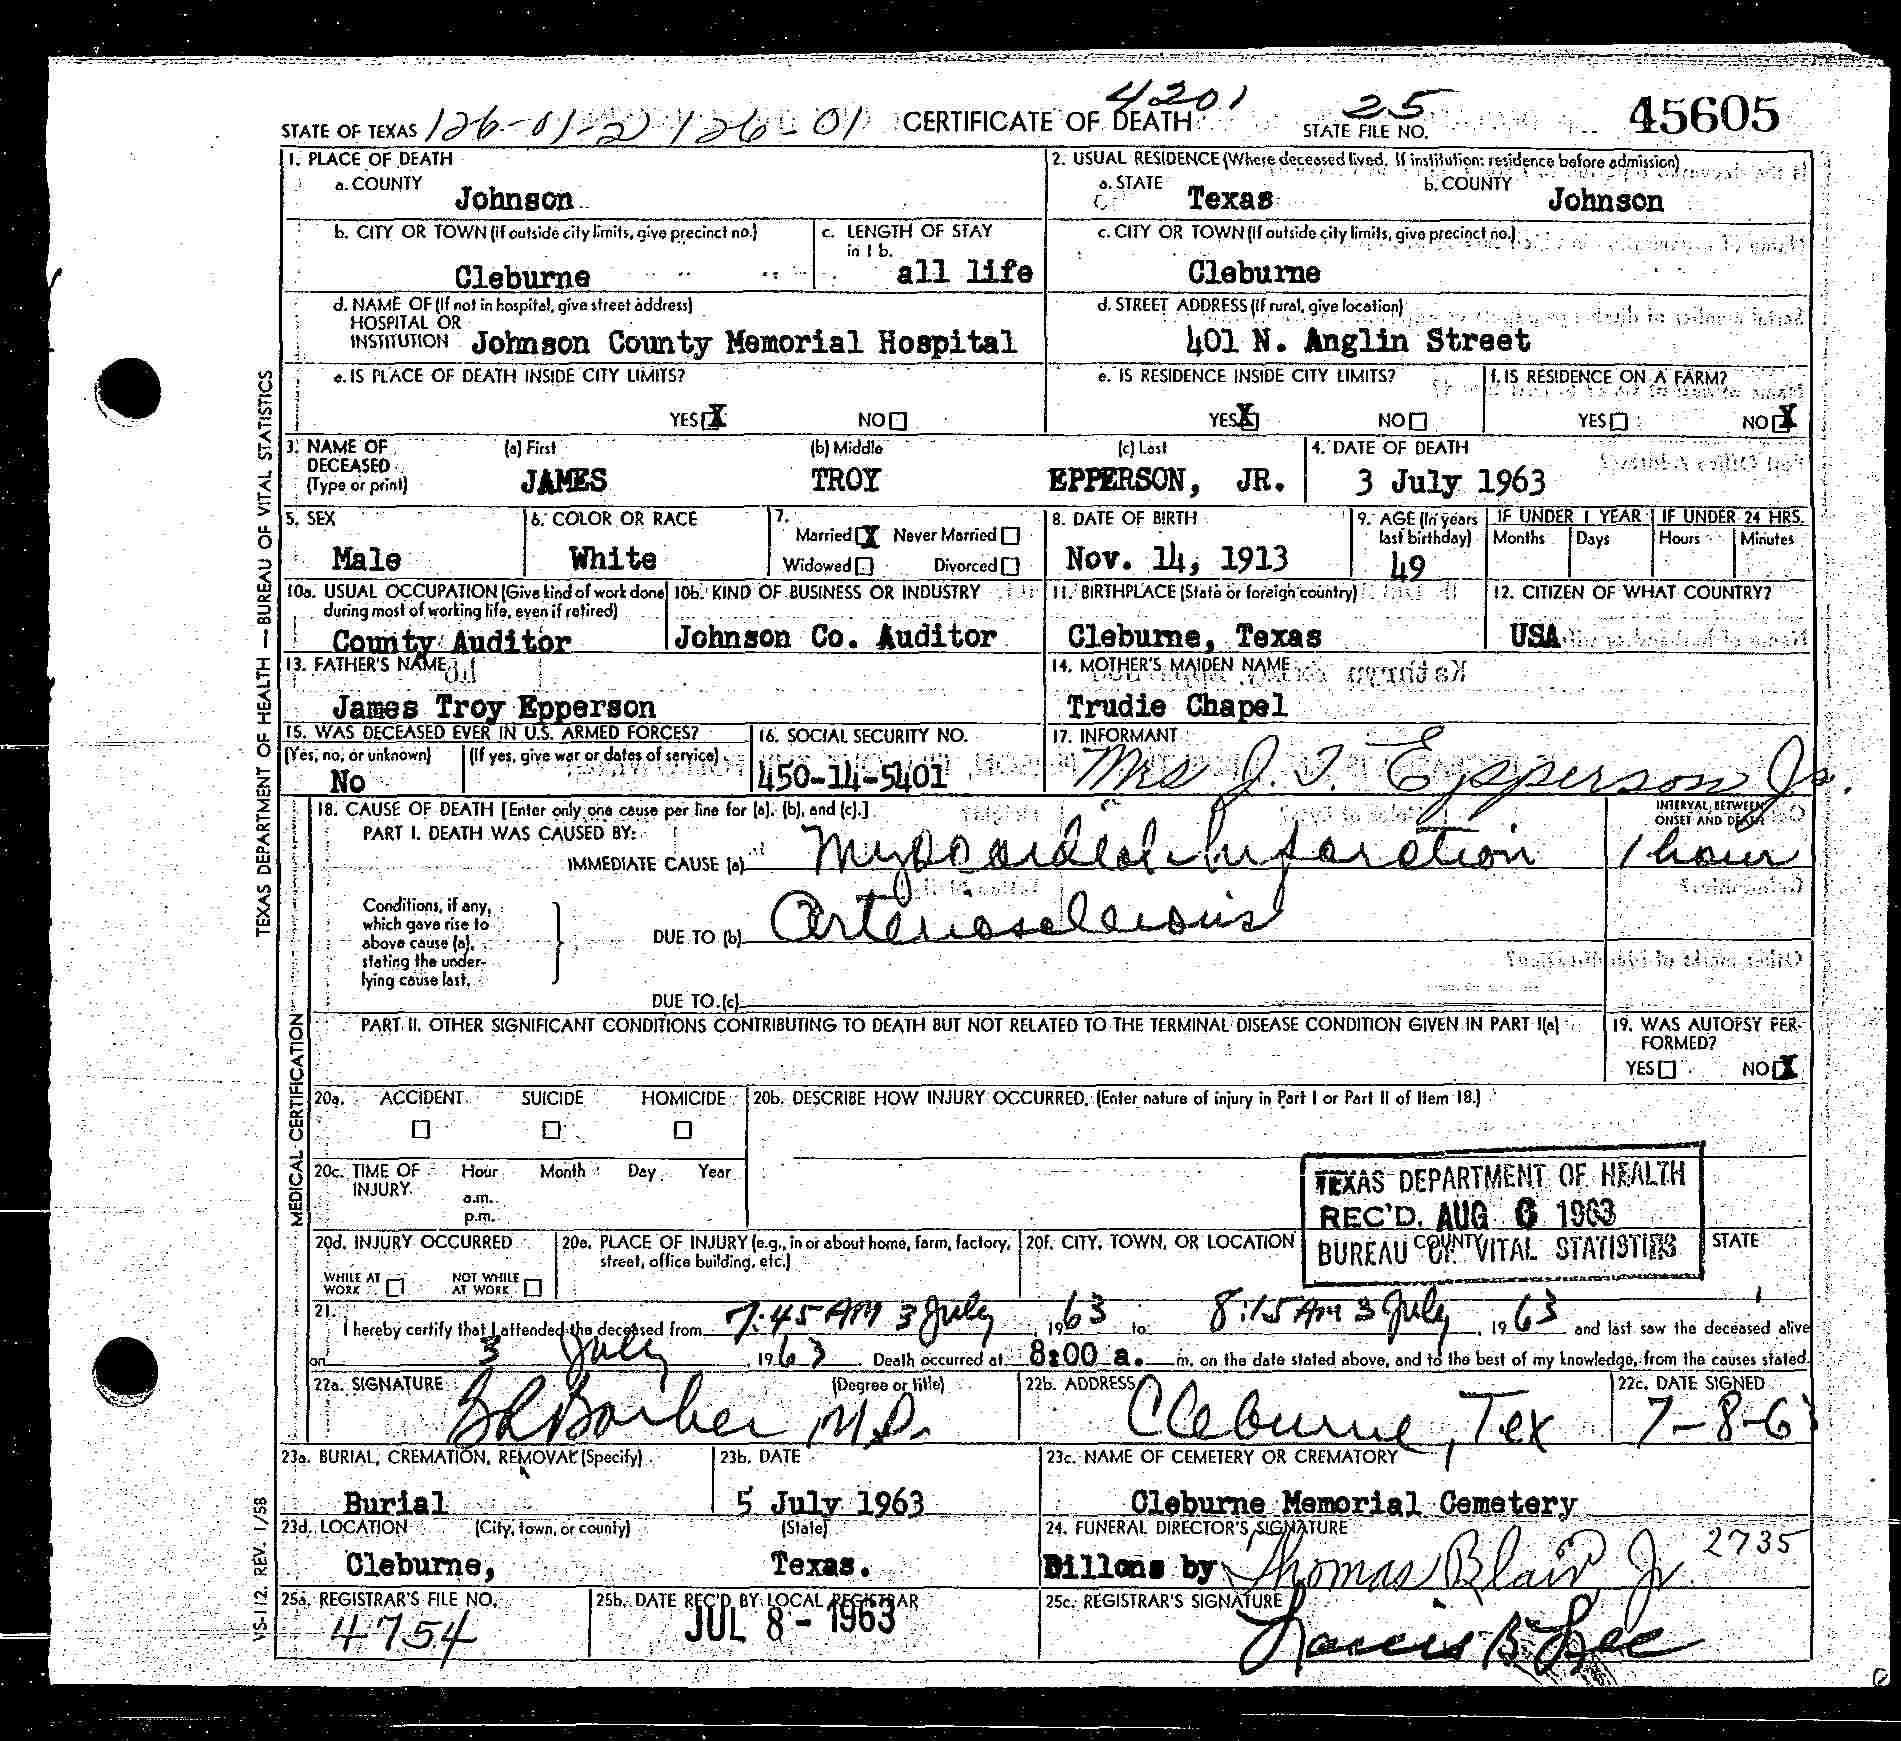 4201
STATE OF TEXAS 126-01-2 126-01 CERTIFICATE OF DEATH 25 STATE FILE NO. 45605
1. PLACE OF DEATH
a. COUNTY
Johnson
2. USUAL RESIDENCE (Where deceased lived. If institution: residence before admission)
a. STATE Texas b. COUNTY Johnson
b. CITY OR TOWN (If outside city limits, give precinct no.)
Cleburne
c. LENGTH OF STAY in 1 b.
all life
c. CITY OR TOWN (If outside city limits, give precinct no.)
Cleburne
d. NAME OF (If not in hospital, give street address)
HOSPITAL OR
INSTITUTION Johnson County Memorial Hospital
d. STREET ADDRESS (If rural, give location)
401 N. Anglin Street
e. IS PLACE OF DEATH INSIDE CITY LIMITS?
YES X NO
e. IS RESIDENCE INSIDE CITY LIMITS?
YES X NO
f. IS RESIDENCE ON A FARM?
YES NO X
3. NAME OF DECEASED (Type or print)
(a) First (b) Middle (c) Last
JAMES TROY EPPERSON, JR.
4. DATE OF DEATH
3 July 1963
5. SEX
Male
6. COLOR OR RACE
White
7.
Married X Never Married
Widowed Divorced
8. DATE OF BIRTH
Nov. 14, 1913
9. AGE (In years last birthday)
49
IF UNDER 1 YEAR
Months Days
IF UNDER 24 HRS.
Hours Minutes
10a. USUAL OCCUPATION (Give kind of work done during most of working life, even if retired)
County Auditor
10b. KIND OF BUSINESS OR INDUSTRY
Johnson Co. Auditor
11. BIRTHPLACE (State or foreign country)
Cleburne, Texas
12. CITIZEN OF WHAT COUNTRY?
USA
13. FATHER'S NAME
James Troy Epperson
14. MOTHER'S MAIDEN NAME
Trudie Chapel
15. WAS DECEASED EVER IN U.S. ARMED FORCES?
(Yes, no, or unknown) (If yes, give war or dates of service)
No
16. SOCIAL SECURITY NO.
450-14-5401
17. INFORMANT
Mrs J. T. Epperson Jr.
18. CAUSE OF DEATH [Enter only one cause per line for (a), (b), and (c).]
INTERVAL BETWEEN ONSET AND DEATH
PART I. DEATH WAS CAUSED BY:
IMMEDIATE CAUSE (a) Myocardial Infarction 1 hour
Conditions, if any, which gave rise to above cause (a), stating the underlying cause last.
DUE TO (b) Arteriosclerosis
DUE TO (c)
PART II. OTHER SIGNIFICANT CONDITIONS CONTRIBUTING TO DEATH BUT NOT RELATED TO THE TERMINAL DISEASE CONDITION GIVEN IN PART I(a)
19. WAS AUTOPSY PERFORMED?
YES NO X
20a. ACCIDENT SUICIDE HOMICIDE
20b. DESCRIBE HOW INJURY OCCURRED. (Enter nature of injury in Part I or Part II of Item 18.)
20c. TIME OF INJURY Hour Month Day Year
a.m.
p.m.
TEXAS DEPARTMENT OF HEALTH
REC'D. AUG 6 1963
BUREAU OF VITAL STATISTICS
20d. INJURY OCCURRED
WHILE AT WORK NOT WHILE AT WORK
20e. PLACE OF INJURY (e.g., in or about home, farm, factory, street, office building, etc.)
20f. CITY, TOWN, OR LOCATION COUNTY STATE
21. I hereby certify that I attended the deceased from 7:45 AM 3 July, 1963 to 8:15 AM 3 July, 1963 and last saw the deceased alive
on 3 July, 1963. Death occurred at 8:00 a. m. on the date stated above, and to the best of my knowledge, from the causes stated.
22a. SIGNATURE (Degree or title)
Barber M.D.
22b. ADDRESS
Cleburne, Tex
22c. DATE SIGNED
7-8-63
23a. BURIAL, CREMATION, REMOVAL (Specify)
Burial
23b. DATE
5 July 1963
23c. NAME OF CEMETERY OR CREMATORY
Cleburne Memorial Cemetery
23d. LOCATION (City, town, or county) (State)
Cleburne, Texas.
24. FUNERAL DIRECTOR'S SIGNATURE
Dillons by Thomas Blair Jr. 2735
25a. REGISTRAR'S FILE NO.
4754
25b. DATE REC'D BY LOCAL REGISTRAR
JUL 8 - 1963
25c. REGISTRAR'S SIGNATURE
B. Lee
TEXAS DEPARTMENT OF HEALTH — BUREAU OF VITAL STATISTICS
MEDICAL CERTIFICATION
VS-112 REV. 1/58